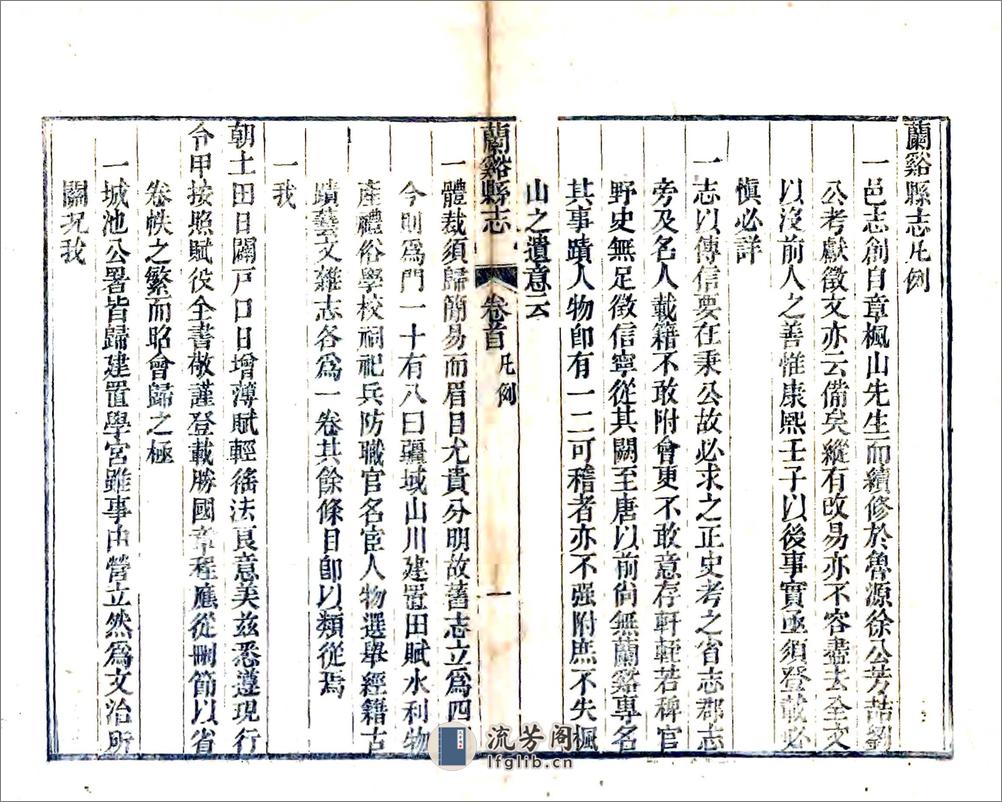 蘭谿縣志凡例
一邑志創自章楓山先生而續修於魯源徐公芳喆劉
公考獻徵文亦云備矣縱有改易亦不容盡去全文
以沒前人之善惟康熙壬子以後事實亟須登載必
愼必詳
一志以傳信要在秉公故必求之正史考之省志郡志
旁及名人載籍不敢附會更不敢意存軒輊若稗官
野史無足徵信寧從其闕至唐以前尙無蘭谿專名
其事蹟人物卽有一二可稽者亦不强附庶不失楓
山之遺意云
蘭谿縣志 卷首 凡例 一
一體裁須歸簡易而眉目尤貴分明故舊志立爲四
今則爲門一十有八曰疆域山川建置田賦水利物
產禮俗學校祠祀兵防職官名宦人物選舉經籍古
蹟藝文雜志各爲一卷其餘條目卽以類從焉
一我
朝土田日闢戸口日增薄賦輕徭法良意美茲悉遵現行
令甲按照賦役全書敬謹登載勝國章程應從刪節以省
卷帙之繁而昭會歸之極
一城池公署皆歸建置學宮雖事由營立然爲文治所
關況我
流芳阁
lfglib.cn